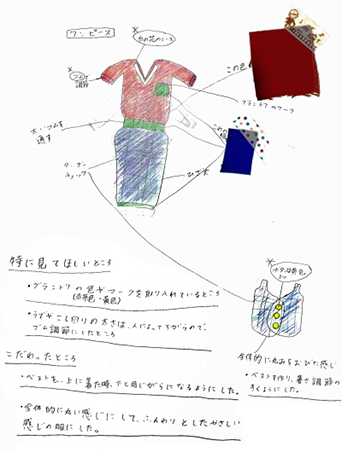 ワンピース
白の花のレース
ゴムで
調節
この色
グランドリアのマーク
この色
太いゴムを
通す
ひざ丈
ボタンは黄色
特に見てほしいところ
・グランドリアの色やマークを取り入れているところ
・うでやこし回りの太さは、人によってちがうので、
ゴム調節にしたところ
こだわったところ
・ベストを、上に着た時、下と同じがらになるようにした。
・全体的に丸い感じにして、ふんわりとしたやさしい
感じの服にした。
全体的に丸みをおびた感じ
・ベストを作り、暑さ調節の
きくようにした。